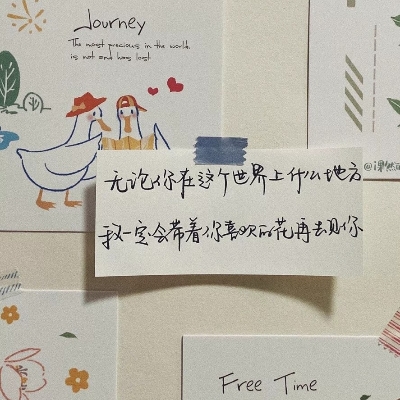 Journey
The most precious in the world
is not and has lost
无论你在这个世界上什么地方
我一定会带着你喜欢的花再去见你
Free Time